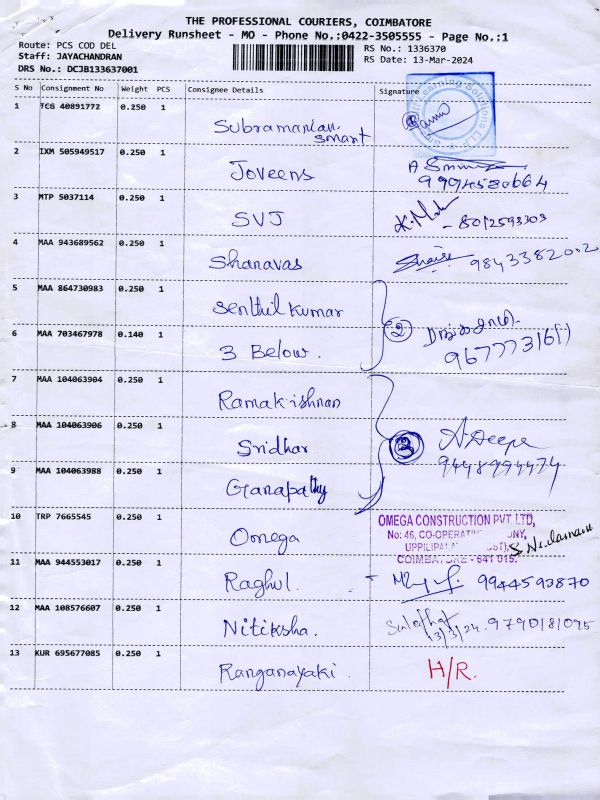 THE PROFESSIONAL COURIERS, COIMBATORE
Delivery Runsheet - MO - Phone No.:0422-3505555 - Page No.:1
Route: PCS COD DEL
Staff: JAYACHANDRAN
DRS No.: DCJB133637001
RS No.: 1336370
RS Date: 13-Mar-2024
S No Consignment No Weight PCS Consignee Details Signature
1 TCG 40891772 0.250 1 Subramanian smart
2 IXM 505949517 0.250 1 Joveens
9994580664
3 MTP 5037114 0.250 1 SVJ - 8012593303
4 MAA 943689562 0.250 1 Shanavas 9843382002
5 MAA 864730983 0.250 1 Senthil Kumar
6 MAA 703467978 0.140 1 3 Below. 2
7 MAA 104063904 0.250 1 Ramakrishnan
8 MAA 104063906 0.250 1 Sridhar 3 A. Deepa
9 MAA 104063988 0.250 1 Ganapathy
10 TRP 7665545 0.250 1 Omega
OMEGA CONSTRUCTION PVT. LTD,
No: 46, CO-OPERATIVE
UPPILIPA
COIMBATORE - 641 015.
11 MAA 944553017 0.250 1 Raghul. 9944593870
12 MAA 108576607 0.250 1 Nitiksha. 13/3/24. 9790181095
13 KUR 695677085 0.250 1 Ranganayaki. H/R.